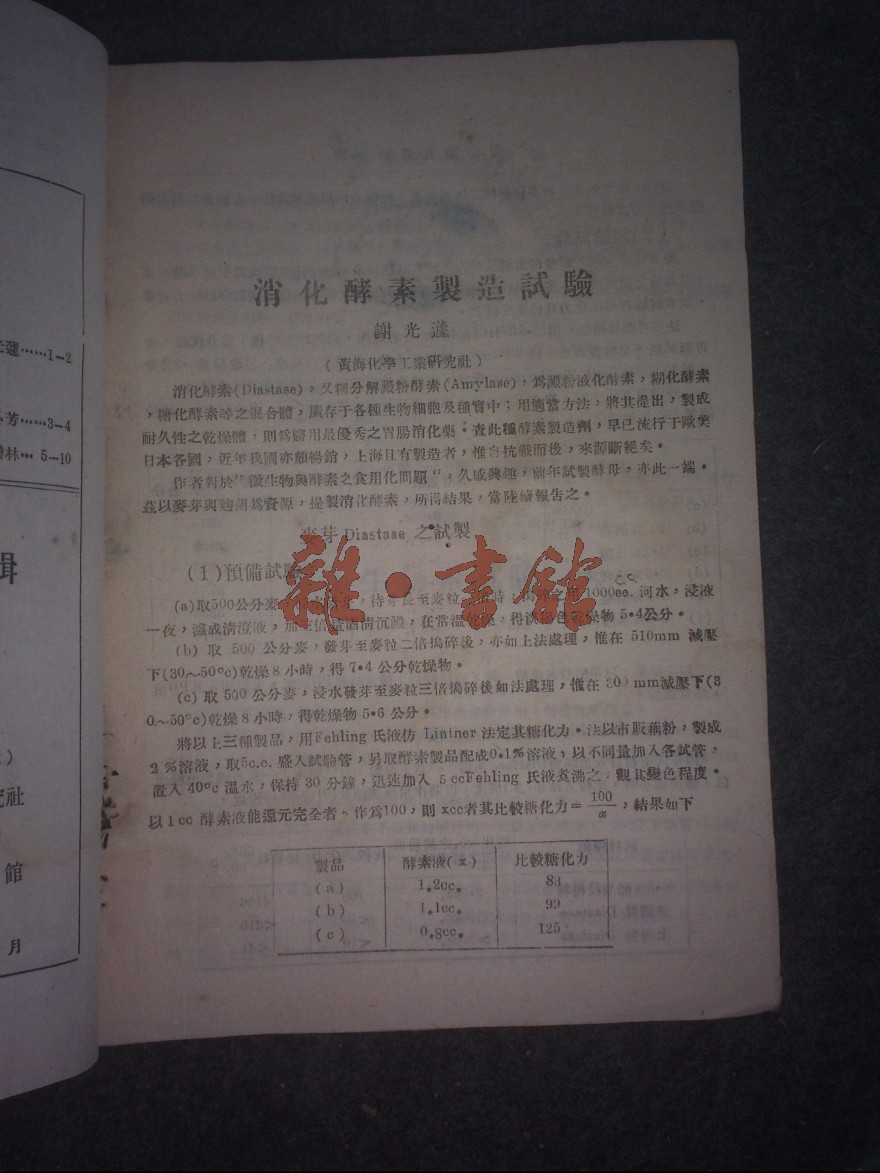 消化酵素製造試驗
謝光
(黃海化學工業研究社)
消化酵素(Diastase),又稱分解澱粉酵素(Amylase),爲澱粉液化酵素,糊化酵素
,糖化酵素等之混合體,廣存于各種生物細胞及種實中;用適當方法,將其提出,製成
耐久性之乾燥體,則爲醫用最優秀之胃腸消化藥。查此種酵素製造劑,早已流行于歐美
日本各國,近年我國亦頗暢銷,上海且有製造者,惟自抗戰而後,來源斷絕矣。
作者對於"微生物與酵素之食用化問題",久感興趣,前年試製酵母,亦此一端。
茲以麥芽與麴菌爲資源,提製消化酵素,所得結果,當陸續報告之。
麥芽Diastase之試製
(1)預備試驗
(a)取500公分麥 待芽長至麥粒 1000cc. 河水,浸液
一夜,濾成清澄液,加 酒精沉澱,在常溫 得淡 色乾燥物 5·4公分。
(b) 取 500 公分麥,發芽至麥粒二倍搗碎後,亦如上法處理,惟在 510mm 減壓
下(30~50°c)乾燥8小時,得7·4公分乾燥物。
(c) 取 500 公分麥,浸水發芽至麥粒三倍搗碎後如法處理,惟在 mm減壓下(3
0~50°c)乾燥8小時,得乾燥物5·6公分。
將以上三種製品,用Fehling氏液仿 Lintner 法定其糖化力。法以市販藕粉,製成
2%溶液,取5c.c. 盛入試驗管,另取酵素製品配成0.1%溶液,以不同量加入各試管,
置入40°c溫水,保持30分鐘,迅速加入 5 ccFehling 氏液煑沸之,觀其變色程度。
以1cc 酵素液能還元完全者,作爲100,則 xcc者其比較糖化力= 100/x ,結果如下
製品 酵素液(x) 比較糖化力
(a) 1.2cc. 83
(b) 1.1cc. 99
(c) 0.8cc. 125
雜·書館
……1-2
芳……3-4
林… 5-10
輯
社
館
月